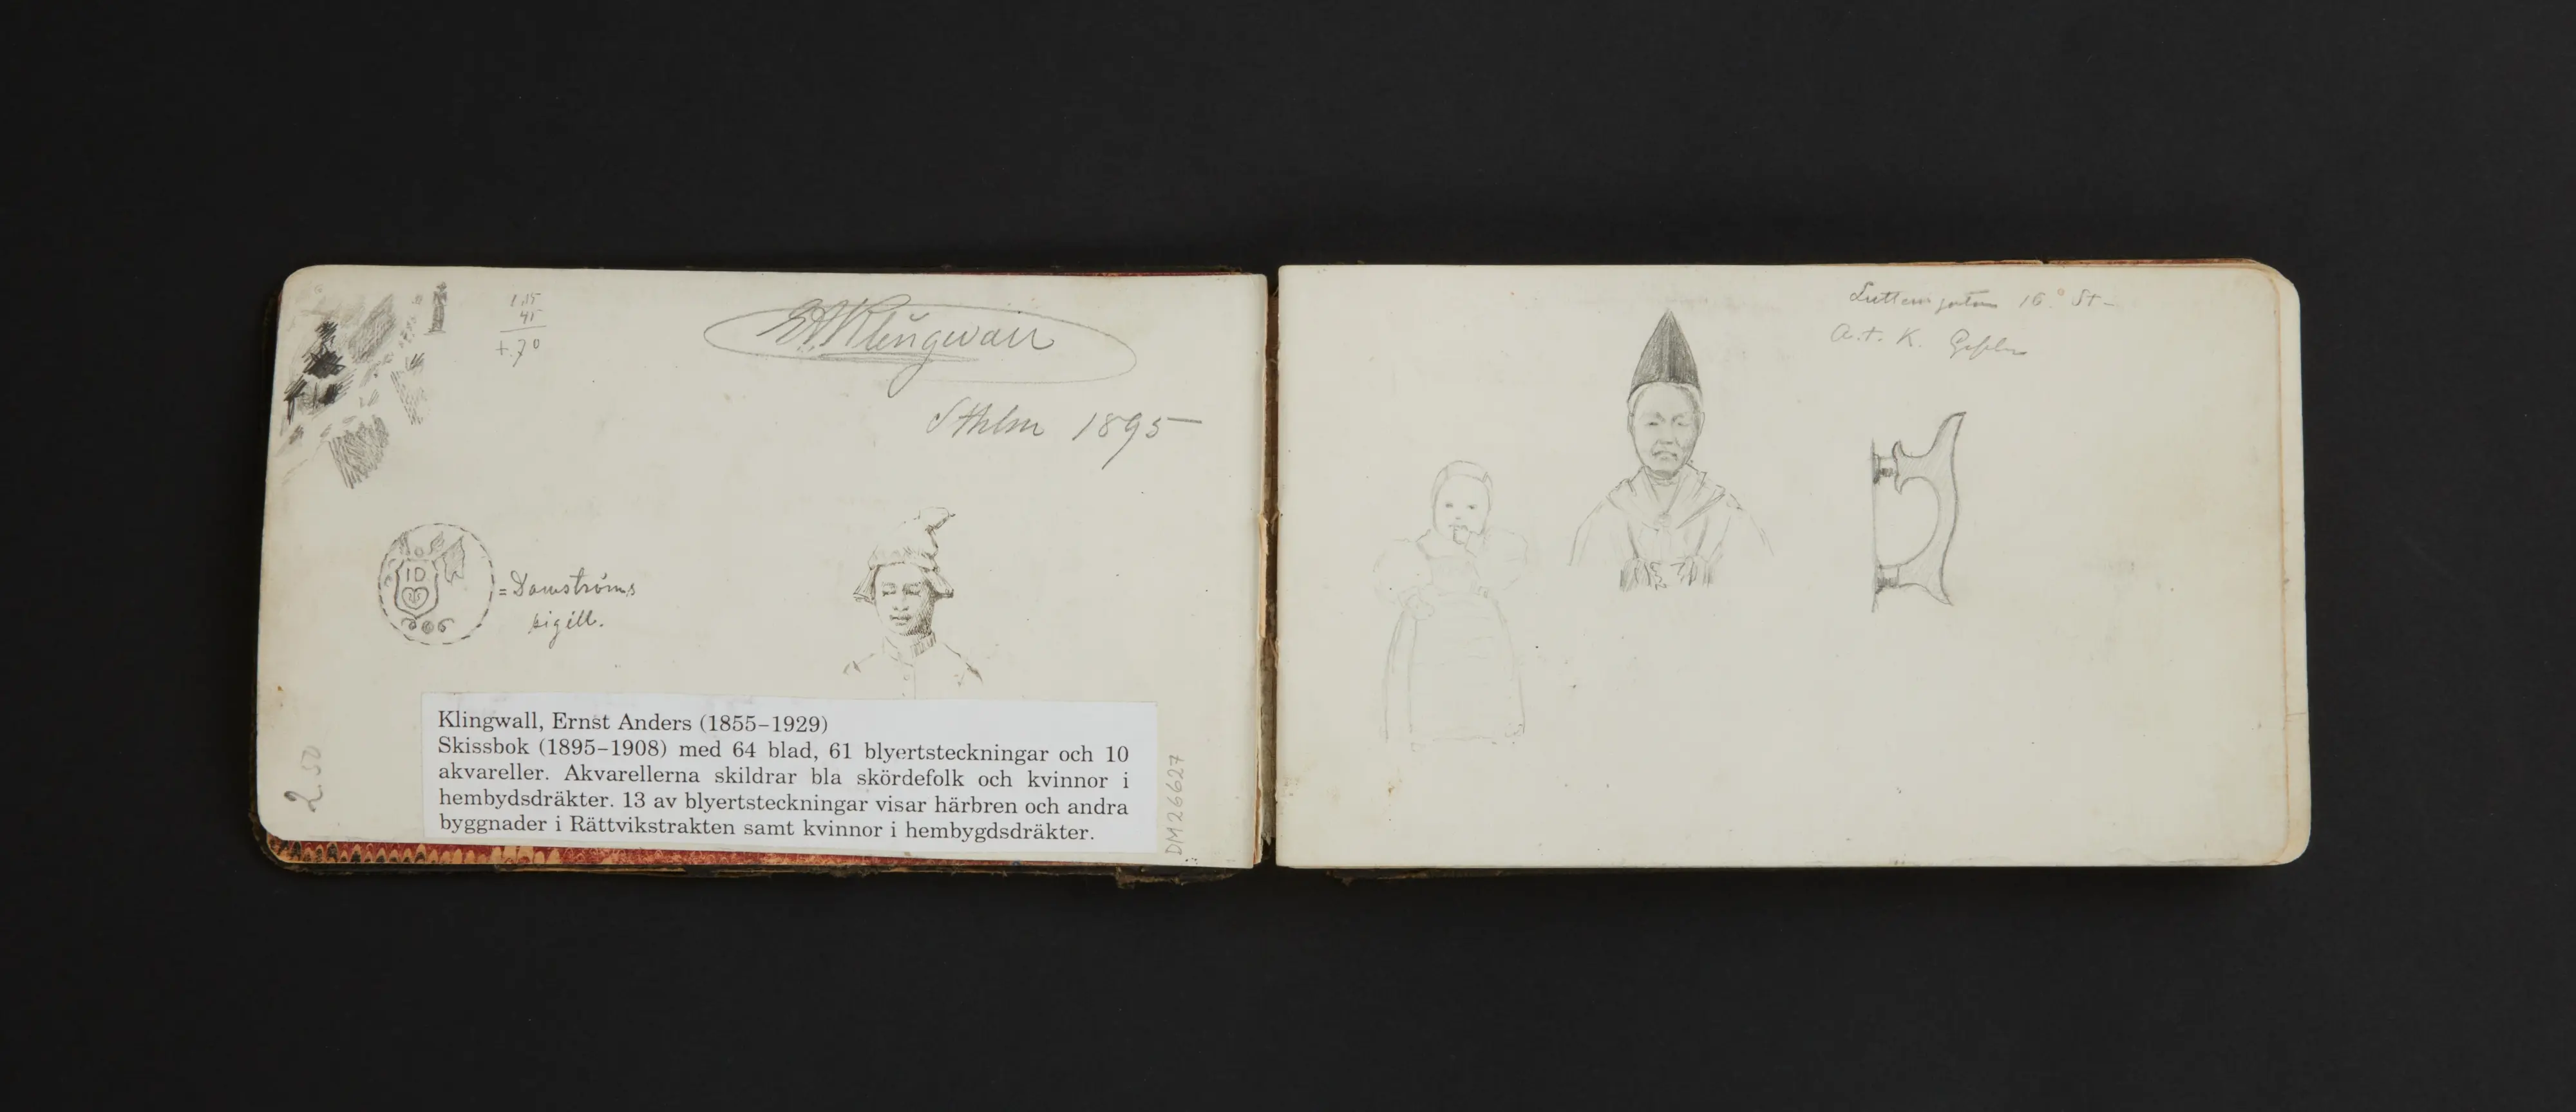 1.15
45
+.70
EAKlingwall
Sthlm 1895
ID
= Damströms
sigill.
Klingwall, Ernst Anders (1855–1929)
Skissbok (1895–1908) med 64 blad, 61 blyertsteckningar och 10
akvareller. Akvarellerna skildrar bla skördefolk och kvinnor i
hembydsdräkter. 13 av blyertsteckningar visar härbren och andra
byggnader i Rättvikstrakten samt kvinnor i hembygdsdräkter.
2.50
DM26627
16. St
A.t. K.